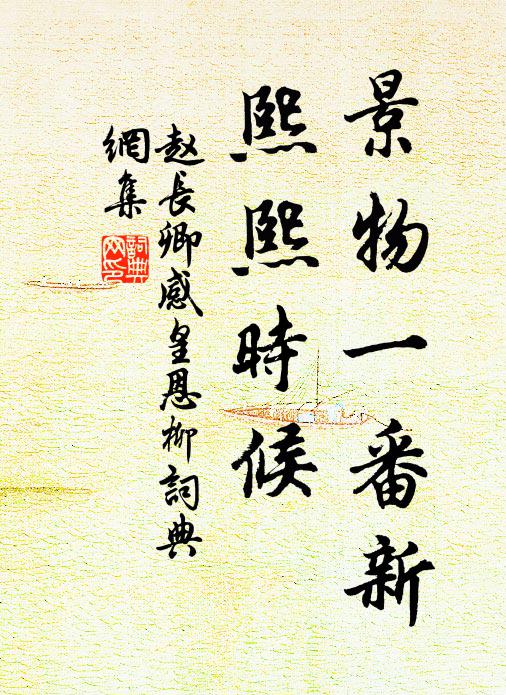 景物一番新
熙熙時候
赵長卿感皇恩柳詞典
網集
詞典
网印